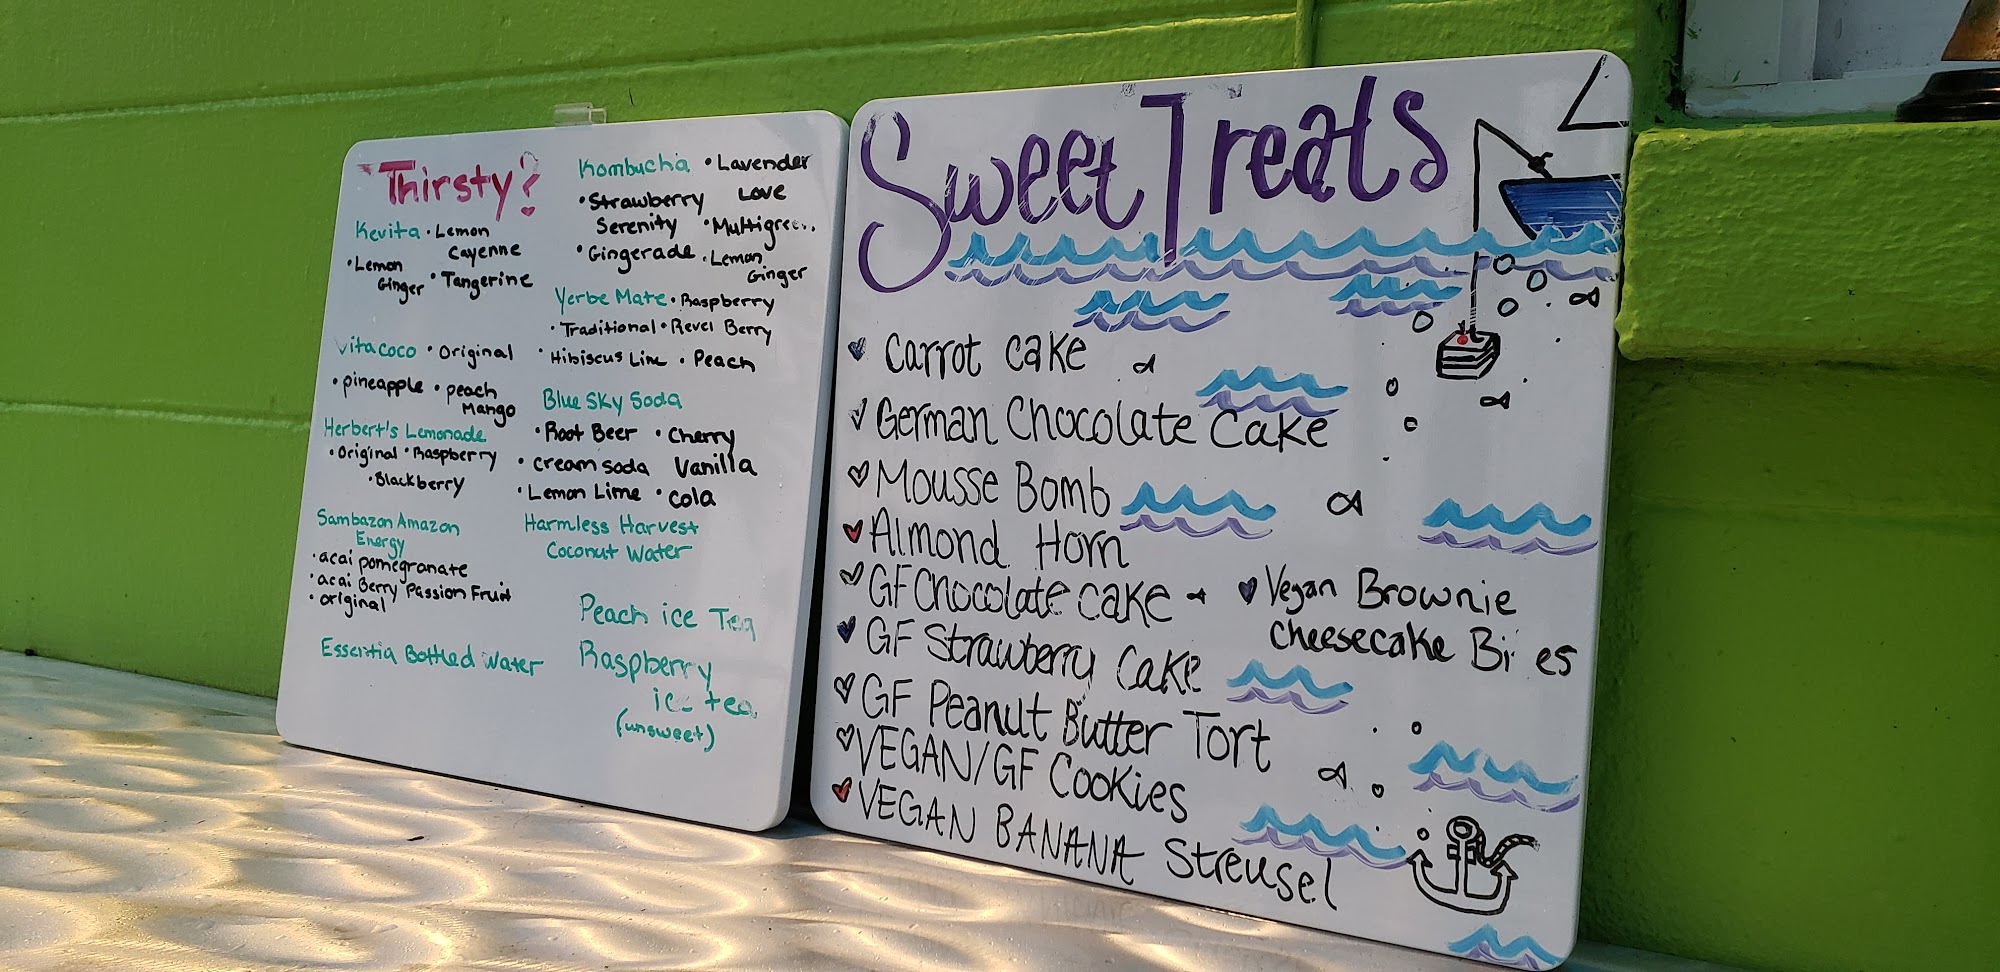 Thirsty?
Kevita • Lemon
Cayenne
• Lemon
Ginger • Tangerine
Vita coco • Original
• pineapple • peach
Mango
Herbert's Lemonade
• Original • Raspberry
• Blackberry
Sambazon Amazon
Energy
• acai pomegranate
• acai Berry Passion Fruit
• original
Essentia Bottled Water
Kombucha • Lavender
Love
• Strawberry
Serenity
• Gingerade • Lemon
Ginger
Yerbe Mate • Raspberry
• Traditional • Revel Berry
• Hibiscus Lime • Peach
Blue Sky Soda
• Root Beer • Cherry
• cream soda Vanilla
• Lemon Lime • cola
Harmless Harvest
Coconut Water
Peach ice Tea
Raspberry
ice tea
(unsweet)
Sweet Treats
Carrot cake
German Chocolate Cake
Mousse Bomb
Almond Horn
GF Chocolate cake
GF Strawberry Cake
GF Peanut Butter Tort
VEGAN/GF Cookies
VEGAN BANANA Streusel
Vegan Brownie
cheesecake